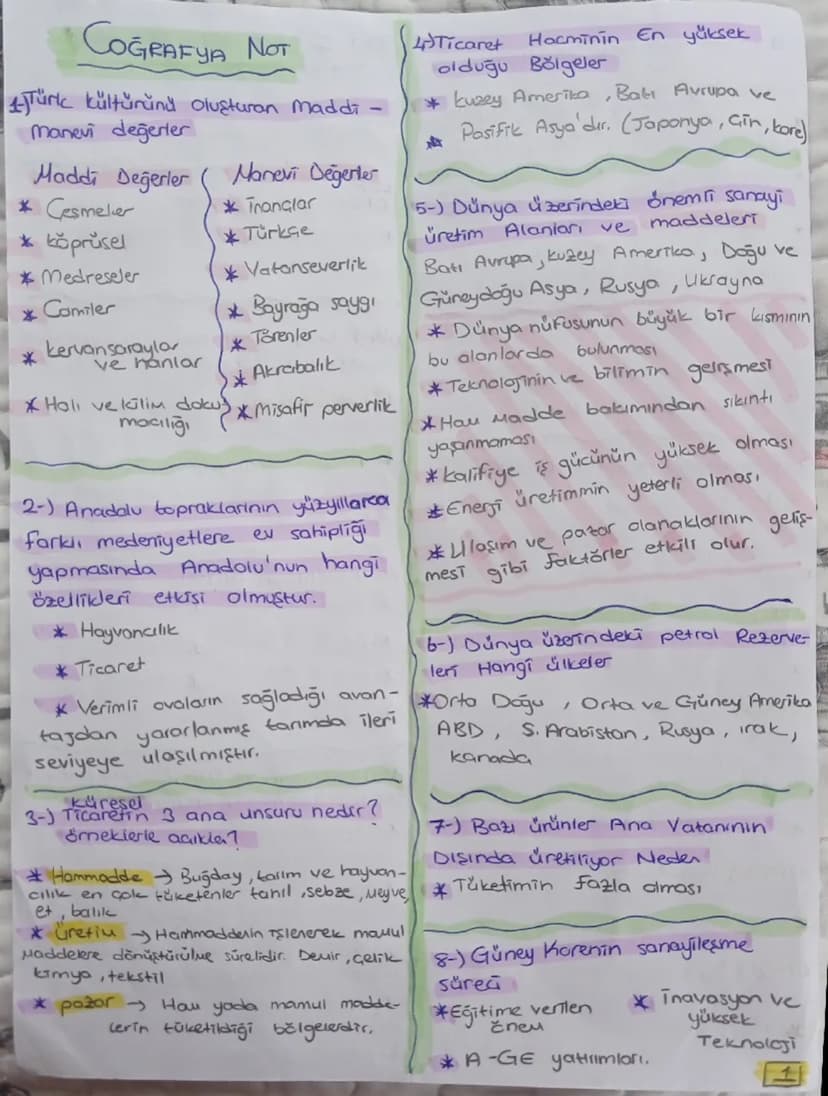 COĞRAFYA NOT
1-)Türk kültürünü oluşturan maddi -
manevi değerler
Maddi Değerler
* Çeşmeler
* köprüsel
* Medreseler
* Camiler
* kervansaraylar
ve hanlar
* Halı ve kilim doku
macılığı
Manevi Değerler
* İnançlar
* Türkçe
* Vatanseverlik
* Bayrağa saygı
* Törenler
* Akrabalık
* Misafir perverlik
2-) Anadolu topraklarının yüzyıllarca
farklı medeniyetlere ev sahipliği
yapmasında Anadolu'nun hangi
özellikleri etkisi olmuştur.
* Hayvancılık
* Ticaret
* Verimli ovaların sağladığı avan-
tajdan yararlanmış tarımda ileri
seviyeye ulaşılmıştır.
3-) küresel Ticaretin 3 ana unsuru nedir?
örneklerle açıkla?
* Hammadde → Buğday, tarım ve hayvan-
cılık en çok tüketenler tahıl, sebze, meyve,
et, balık
* üretim → Hammaddenin işlenerek mamul
maddelere dönüştürülme sürelidir. Demir, çelik
kimya, tekstil
* pazar → Ham yada mamul madde-
lerin tüketildiği bölgelerdir.
4-)Ticaret Hacminin En yüksek
olduğu Bölgeler
* kuzey Amerika, Batı Avrupa ve
* Pasifik Asya'dır. (Japonya, Çin, kore)
5-) Dünya üzerindeki önemli sanayi
üretim Alanları ve maddeleri
Batı Avrupa, kuzey Amerika, Doğu ve
Güneydoğu Asya, Rusya, Ukrayna
* Dünya nüfusunun büyük bir kısmının
bu alanlarda bulunması
* Teknolojinin ve bilimin gelişmesi
* Ham madde bakımından sıkıntı
yaşanmaması
* kalifiye iş gücünün yüksek olması
* Enerji üretimmin yeterli olması
* Ulaşım ve pazar olanaklarının geliş-
mesi gibi faktörler etkili olur.
6-) Dünya üzerindeki petrol Rezerve-
leri Hangi ülkeler
*Orta Doğu, Orta ve Güney Amerika
ABD, S. Arabistan, Rusya, ırak,
kanada
7-) Bazı ürünler Ana Vatanının
Dışında üretiliyor Neden
* Tüketimin fazla olması
8-) Güney Korenin sanayileşme
süreci
*Eğitime verilen
önem
* İnavasyon ve
yüksek
Teknoloji
* A-GE yatırımları.
1